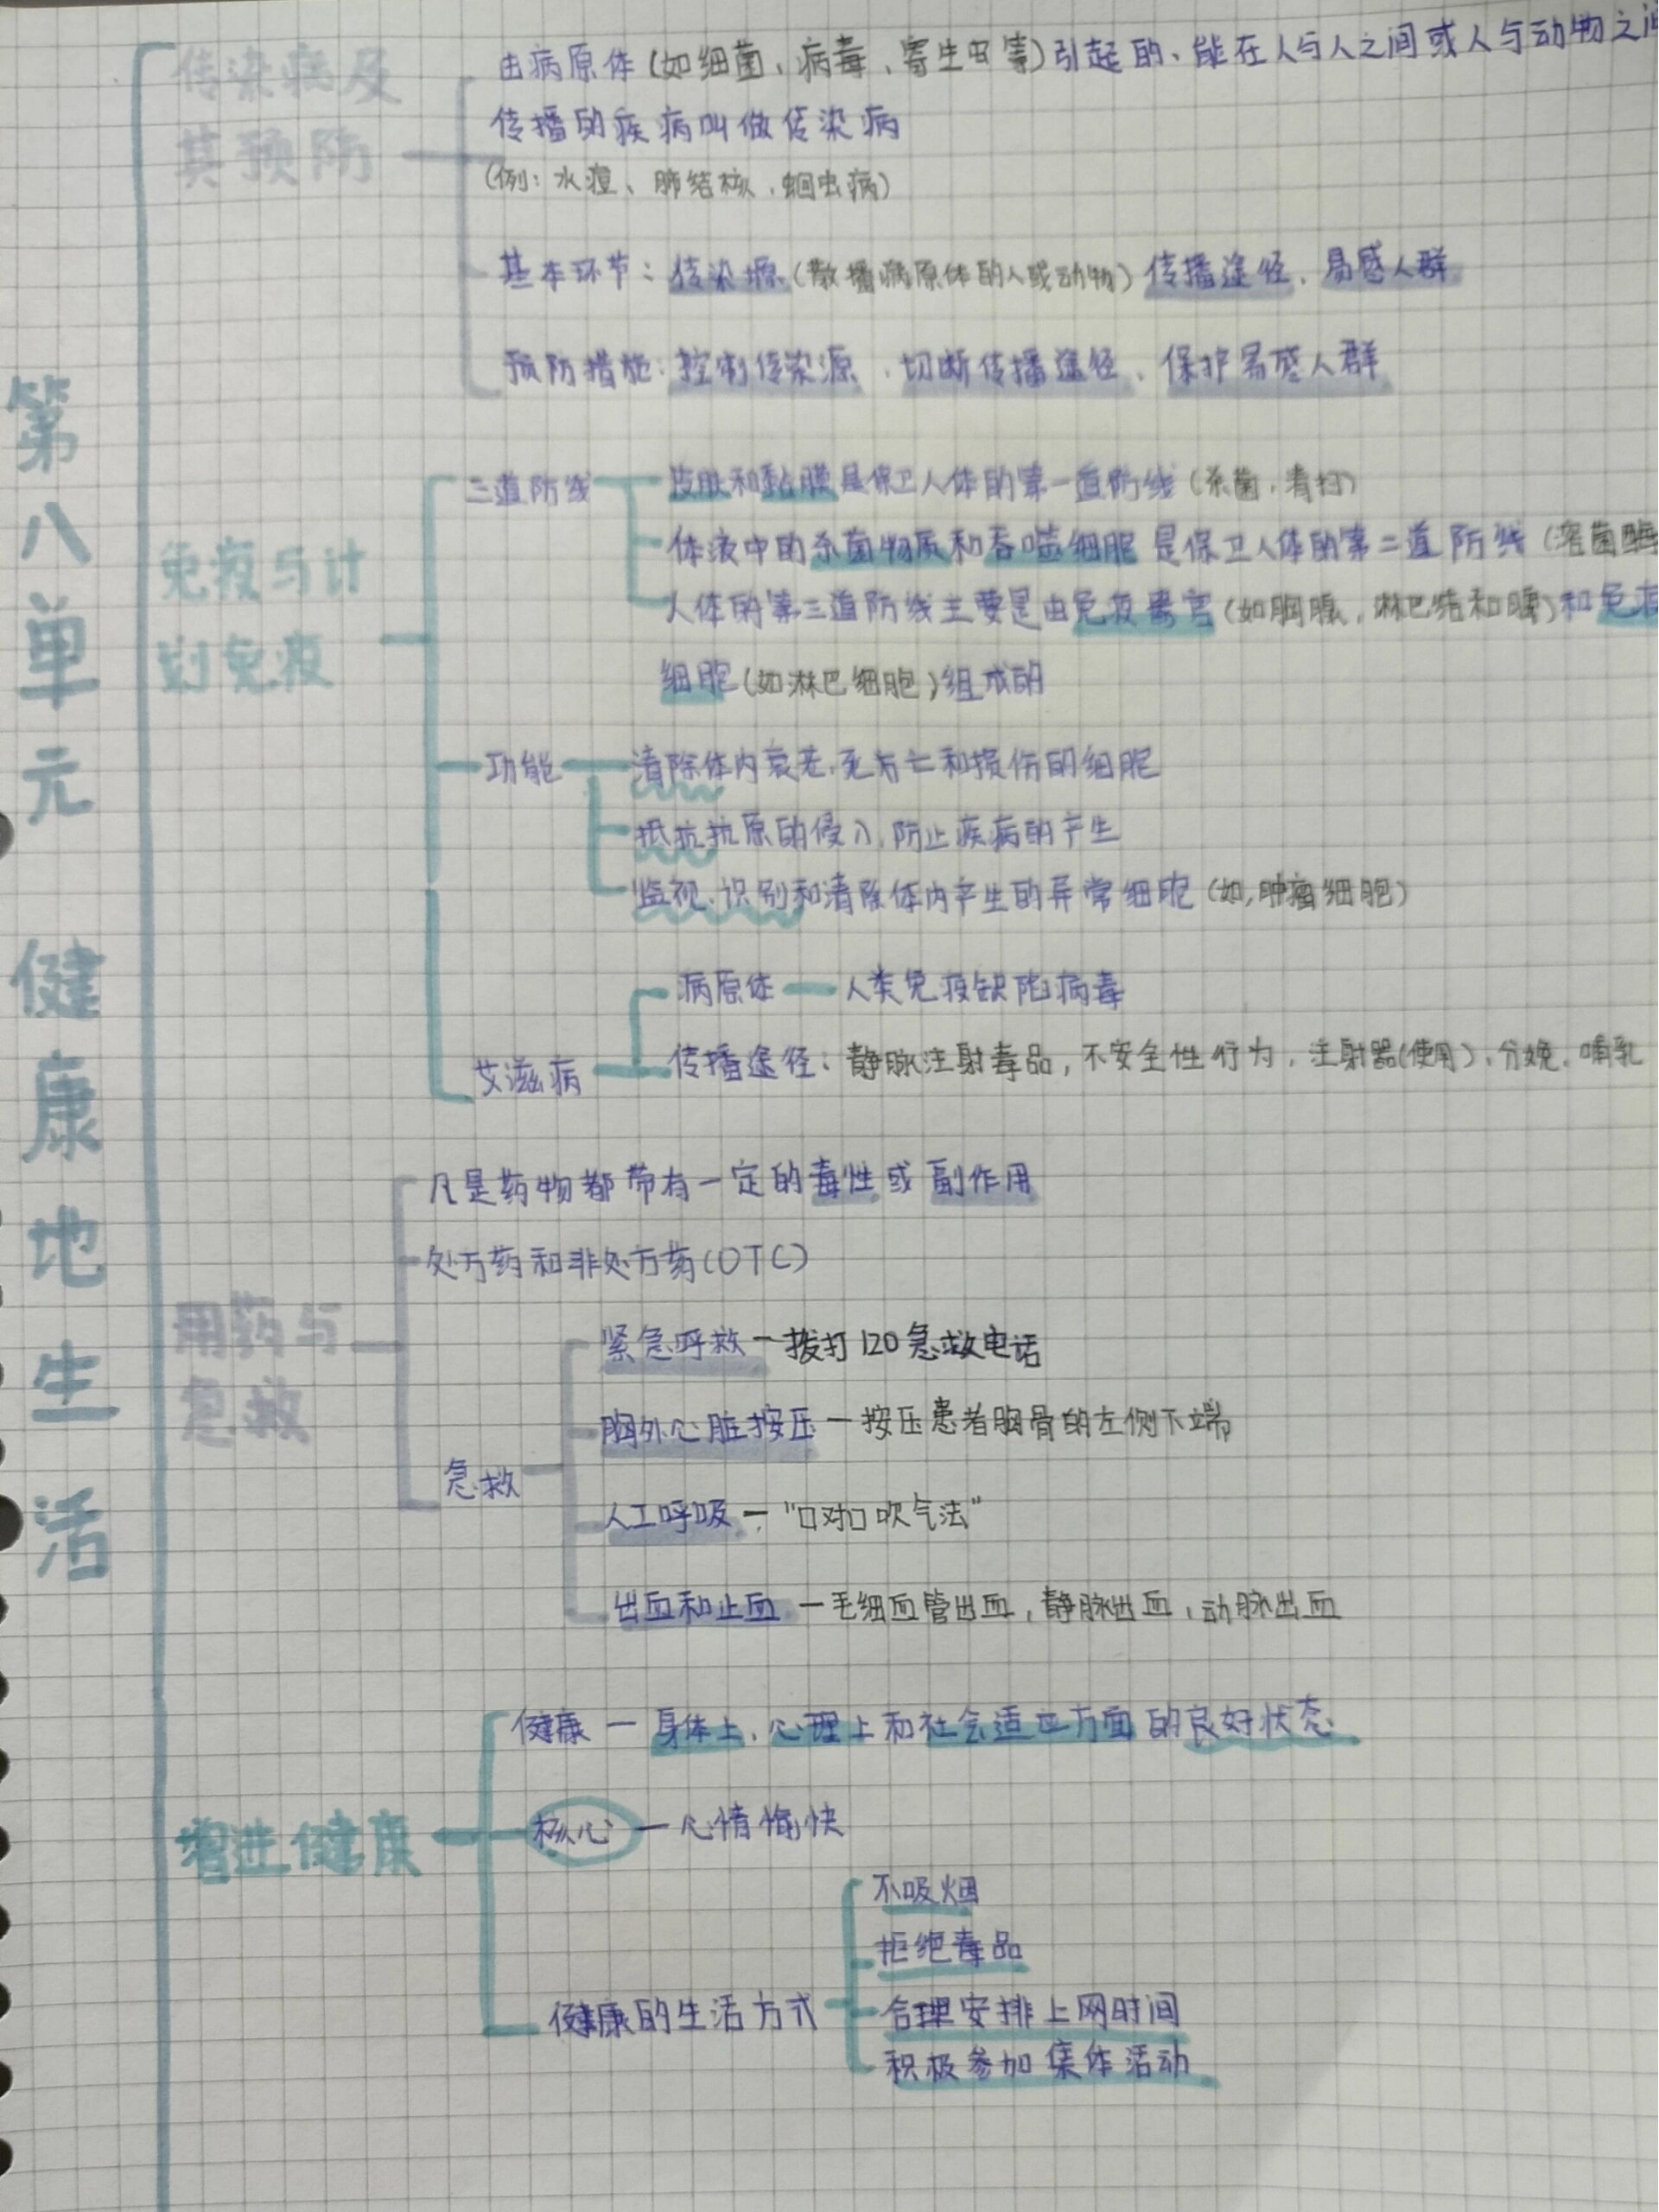 第八单元 健康地生活
传染病及
其预防
由病原体(如细菌、病毒、寄生虫等)引起的、能在人与人之间或人与动物之间
传播的疾病叫做传染病
(例:水痘、肺结核、蛔虫病)
基本环节:传染源(散播病原体的人或动物)传播途径、易感人群
预防措施:控制传染源、切断传播途径、保护易感人群
免疫与计
划免疫
三道防线
皮肤和黏膜是保卫人体的第一道防线(杀菌、清扫)
体液中的杀菌物质和吞噬细胞是保卫人体的第二道防线(溶菌酶
人体的第三道防线主要是由免疫器官(如胸腺,淋巴结和脾)和免疫
细胞(如淋巴细胞)组成的
功能
清除体内衰老、死亡和损伤的细胞
抵抗抗原的侵入、防止疾病的产生
监视、识别和清除体内产生的异常细胞(如,肿瘤细胞)
艾滋病
病原体 — 人类免疫缺陷病毒
传播途径:静脉注射毒品,不安全性行为,注射器(使用)、分娩、哺乳
用药与
急救
凡是药物都带有一定的毒性或副作用
处方药和非处方药(OTC)
急救
紧急呼救 — 拨打120急救电话
胸外心脏按压 — 按压患者胸骨的左侧下端
人工呼吸 — "口对口吹气法"
出血和止血 — 毛细血管出血,静脉出血,动脉出血
增进健康
健康 — 身体上、心理上和社会适应方面的良好状态
核心 — 心情愉快
健康的生活方式
不吸烟
拒绝毒品
合理安排上网时间
积极参加集体活动